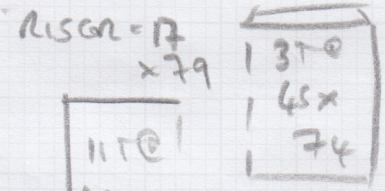 RISER = 17
x 79
11T@
3T@
45x
74